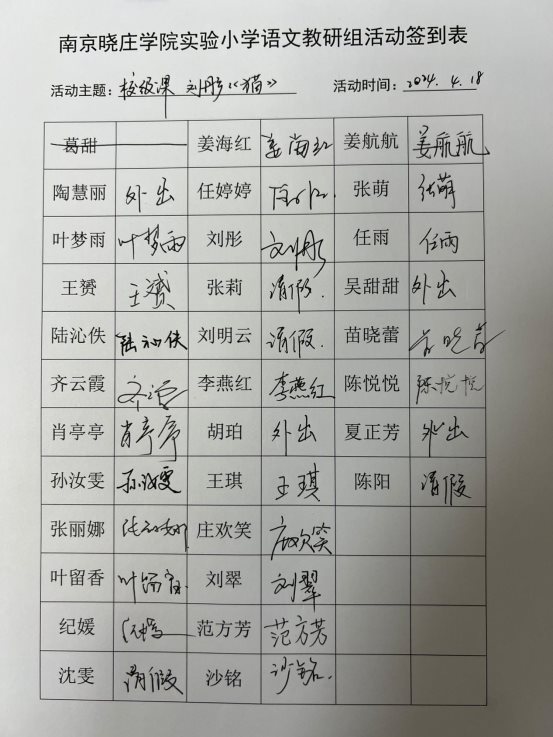 南京晓庄学院实验小学语文教研组活动签到表
活动主题：校级课 刘彤《猫》 活动时间：2024.4.18
葛甜 姜海红 姜海红 姜航航 姜航航
陶慧丽 外出 任婷婷 张萌 张萌
叶梦雨 叶梦雨 刘彤 刘彤 任雨 任雨
王赟 王赟 张莉 请假. 吴甜甜 外出
陆沁佚 陆沁佚 刘明云 请假. 苗晓蕾 苗晓蕾
齐云霞 李燕红 李燕红 陈悦悦 陈悦悦
肖亭亭 肖亭亭 胡珀 外出 夏正芳 外出
孙汝雯 孙汝雯 王琪 王琪 陈阳 请假
张丽娜 张丽娜 庄欢笑 庄欢笑
叶留香 叶留香 刘翠 刘翠
纪媛 纪媛 范方芳 范方芳
沈雯 请假 沙铭 沙铭.